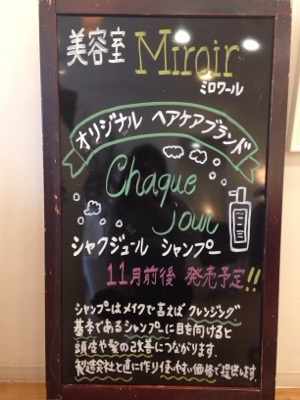 美容室 Miroir
ミロワール
オリジナル ヘアケアブランド
Chaque
jour
シャクジュール シャンプー
11月前後 発売予定!!
シャンプーはメイクで言えば クレンジング
基本であるシャンプーに目を向けると
頭皮や髪の改善につながります。
製造会社と直に作り使いやすい価格で提供します。